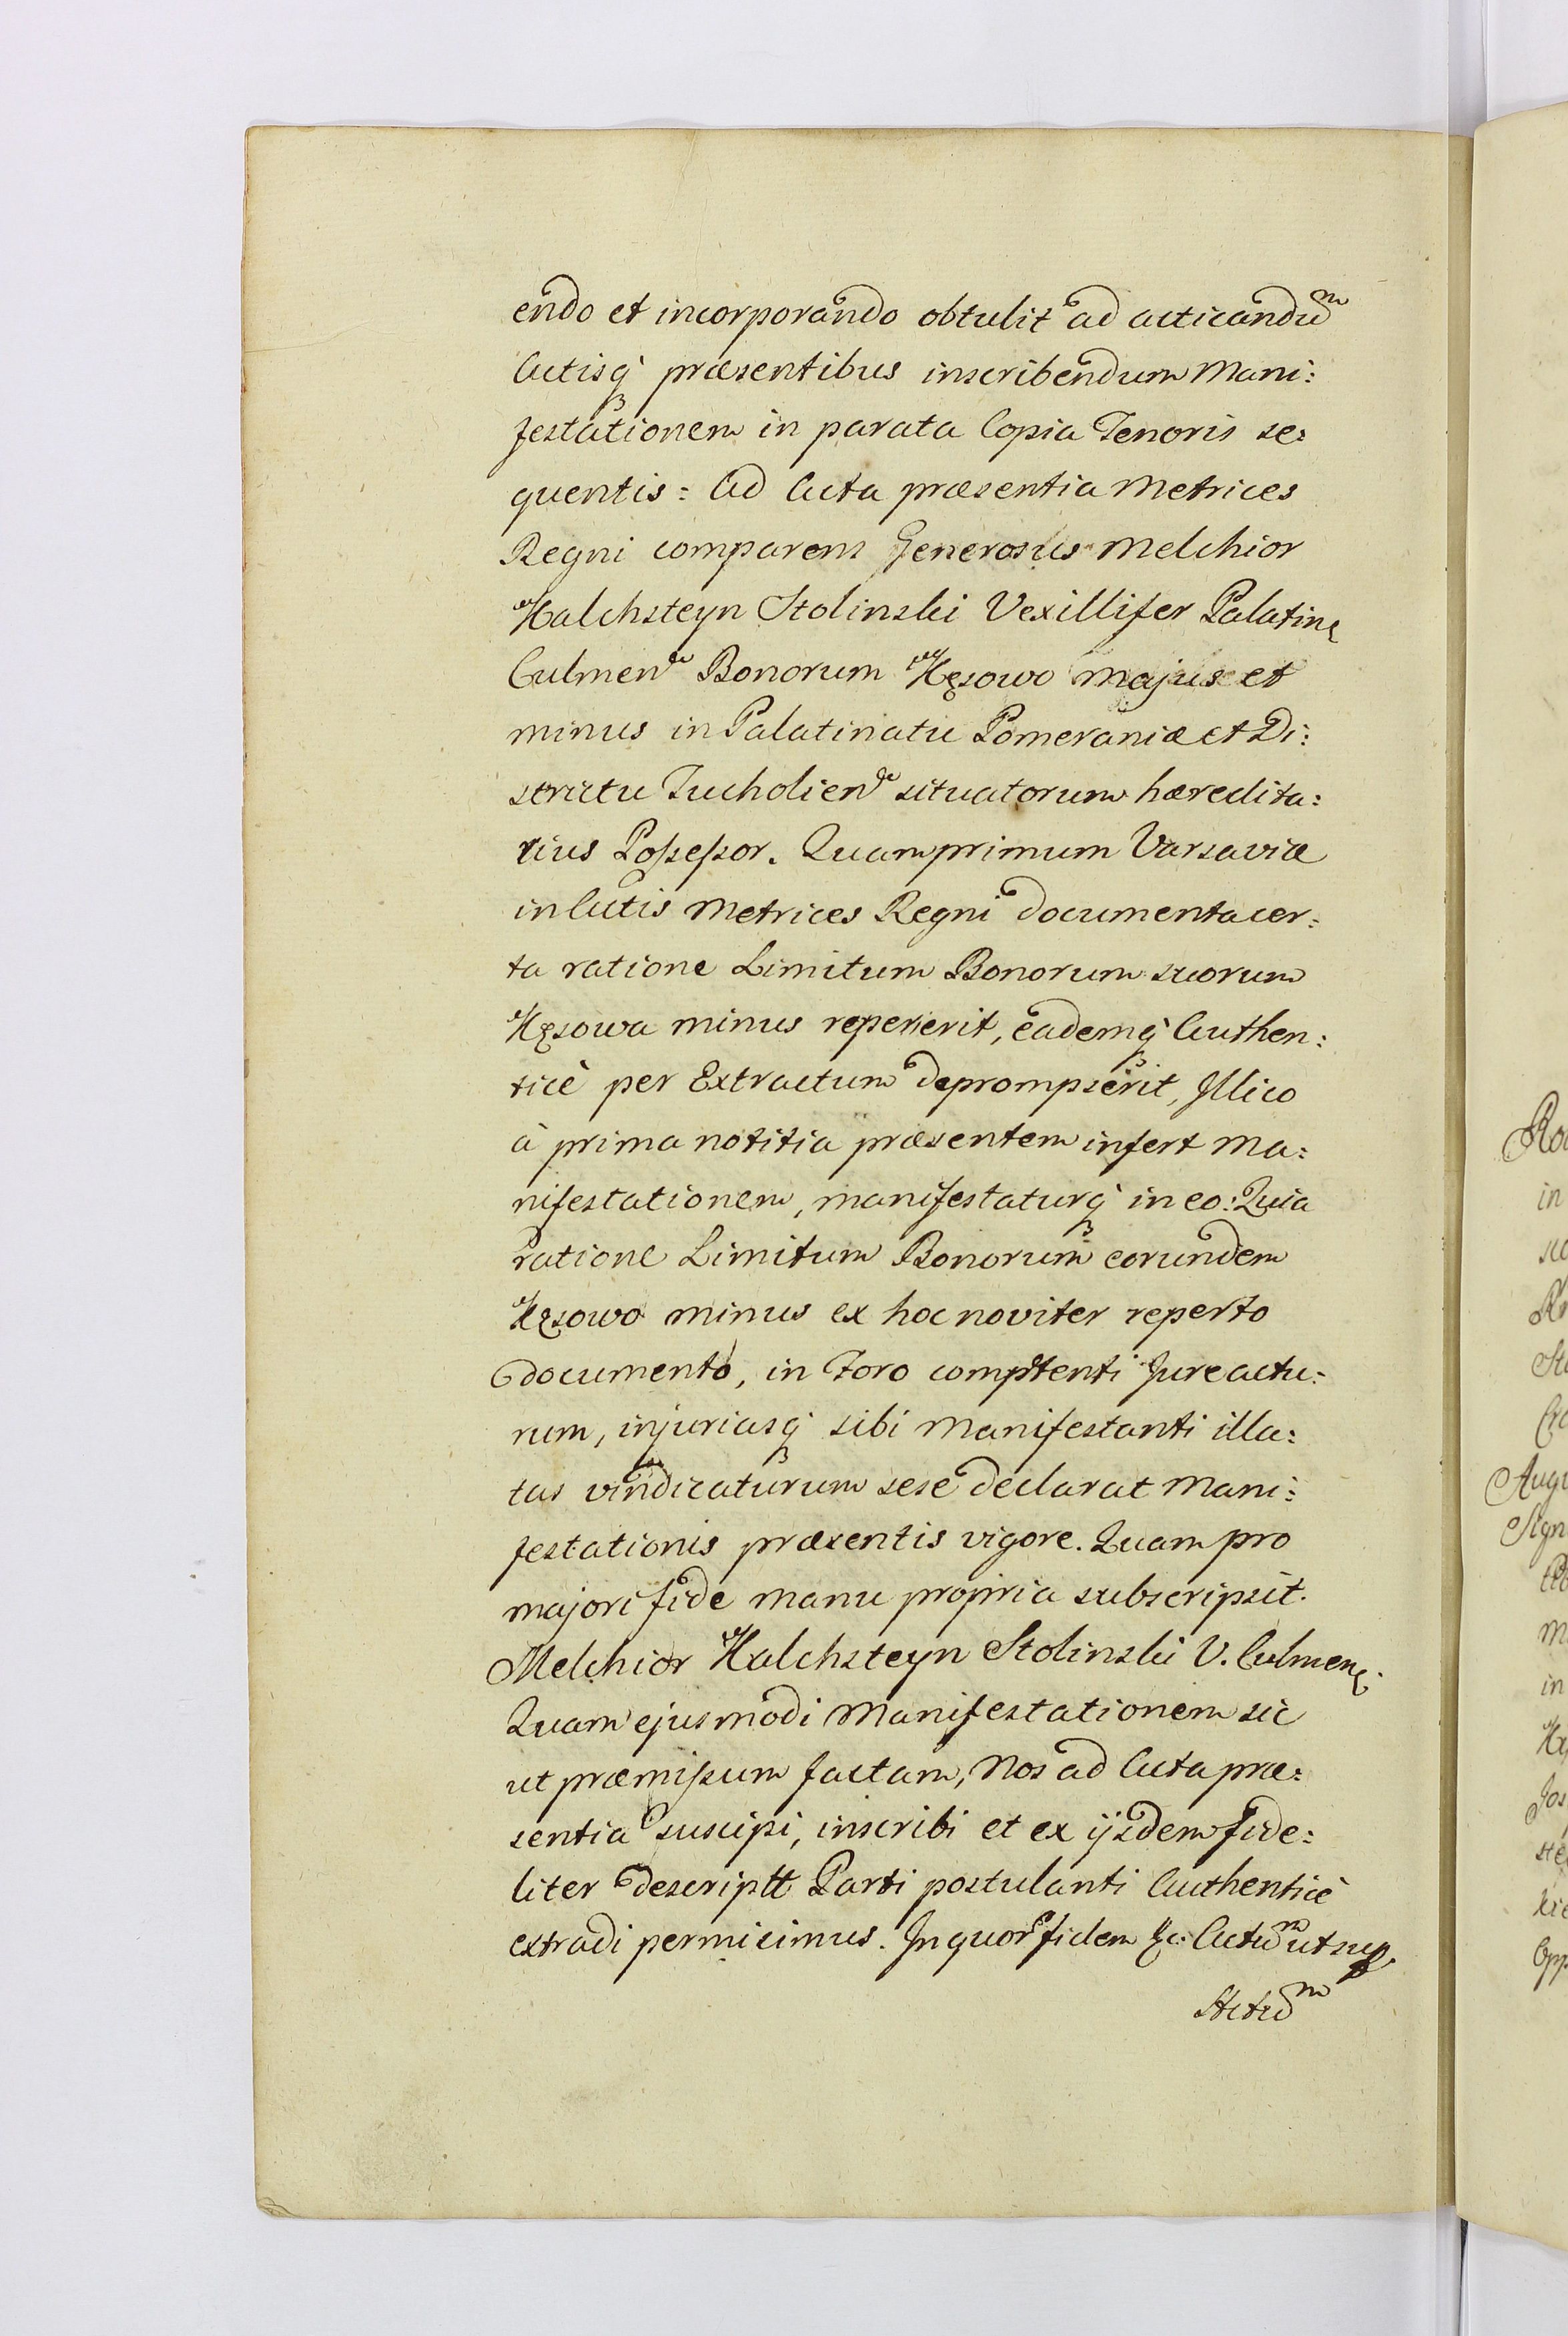 endo et incorporando obtulit ad acticandūm
Actisq; præsentibus inscribendum Mani:
festationem in parata Copia Tenoris se:
quentis: Ad Acta præsentia Metrices
Regni comparens Generosus Melchior
Kalchsteyn Stolinski Vexillifer Palatin
Culmen Bonorum Kęsowo majus et
minus in Palatinatu Pomeraniæ et Di:
strictu Tucholien situatorum hæredita:
rius Possessor. Quamprimum Varsaviæ
in Actis Metrices Regni documenta cer:
ta ratione Limitum Bonorum suorum
Kęsowa minus repererit, eademq; Authen:
ticè per Extractum deprompserit, Illico
à prima notitia præsentem infert Ma:
nifestationem, manifestaturq; in eo: Quia
ratione Limitum Bonorum eorundem
Kęsowo minus ex hoc noviter reperto
documento, in Foro comptenti Jure actu:
rum, injuriasq; sibi Manifestanti illa:
tas vindicaturum sese declarat Mani:
festationis præsentis vigore. Quam pro
majori fide manu propria subscripsit.
Melchior Kalchsteyn Stolinski V. Culmen.
Quam ejusmodi Manifestationem sic
ut præmissum factam, Nos ad Acta præ:
sentia suscipi, inscribi et ex ijsdem fide:
liter descriptt Parti postulanti Authenticè
extradi permisimus. In quor fidem &c: Actūm ut sup.
Actūm
Aug
in